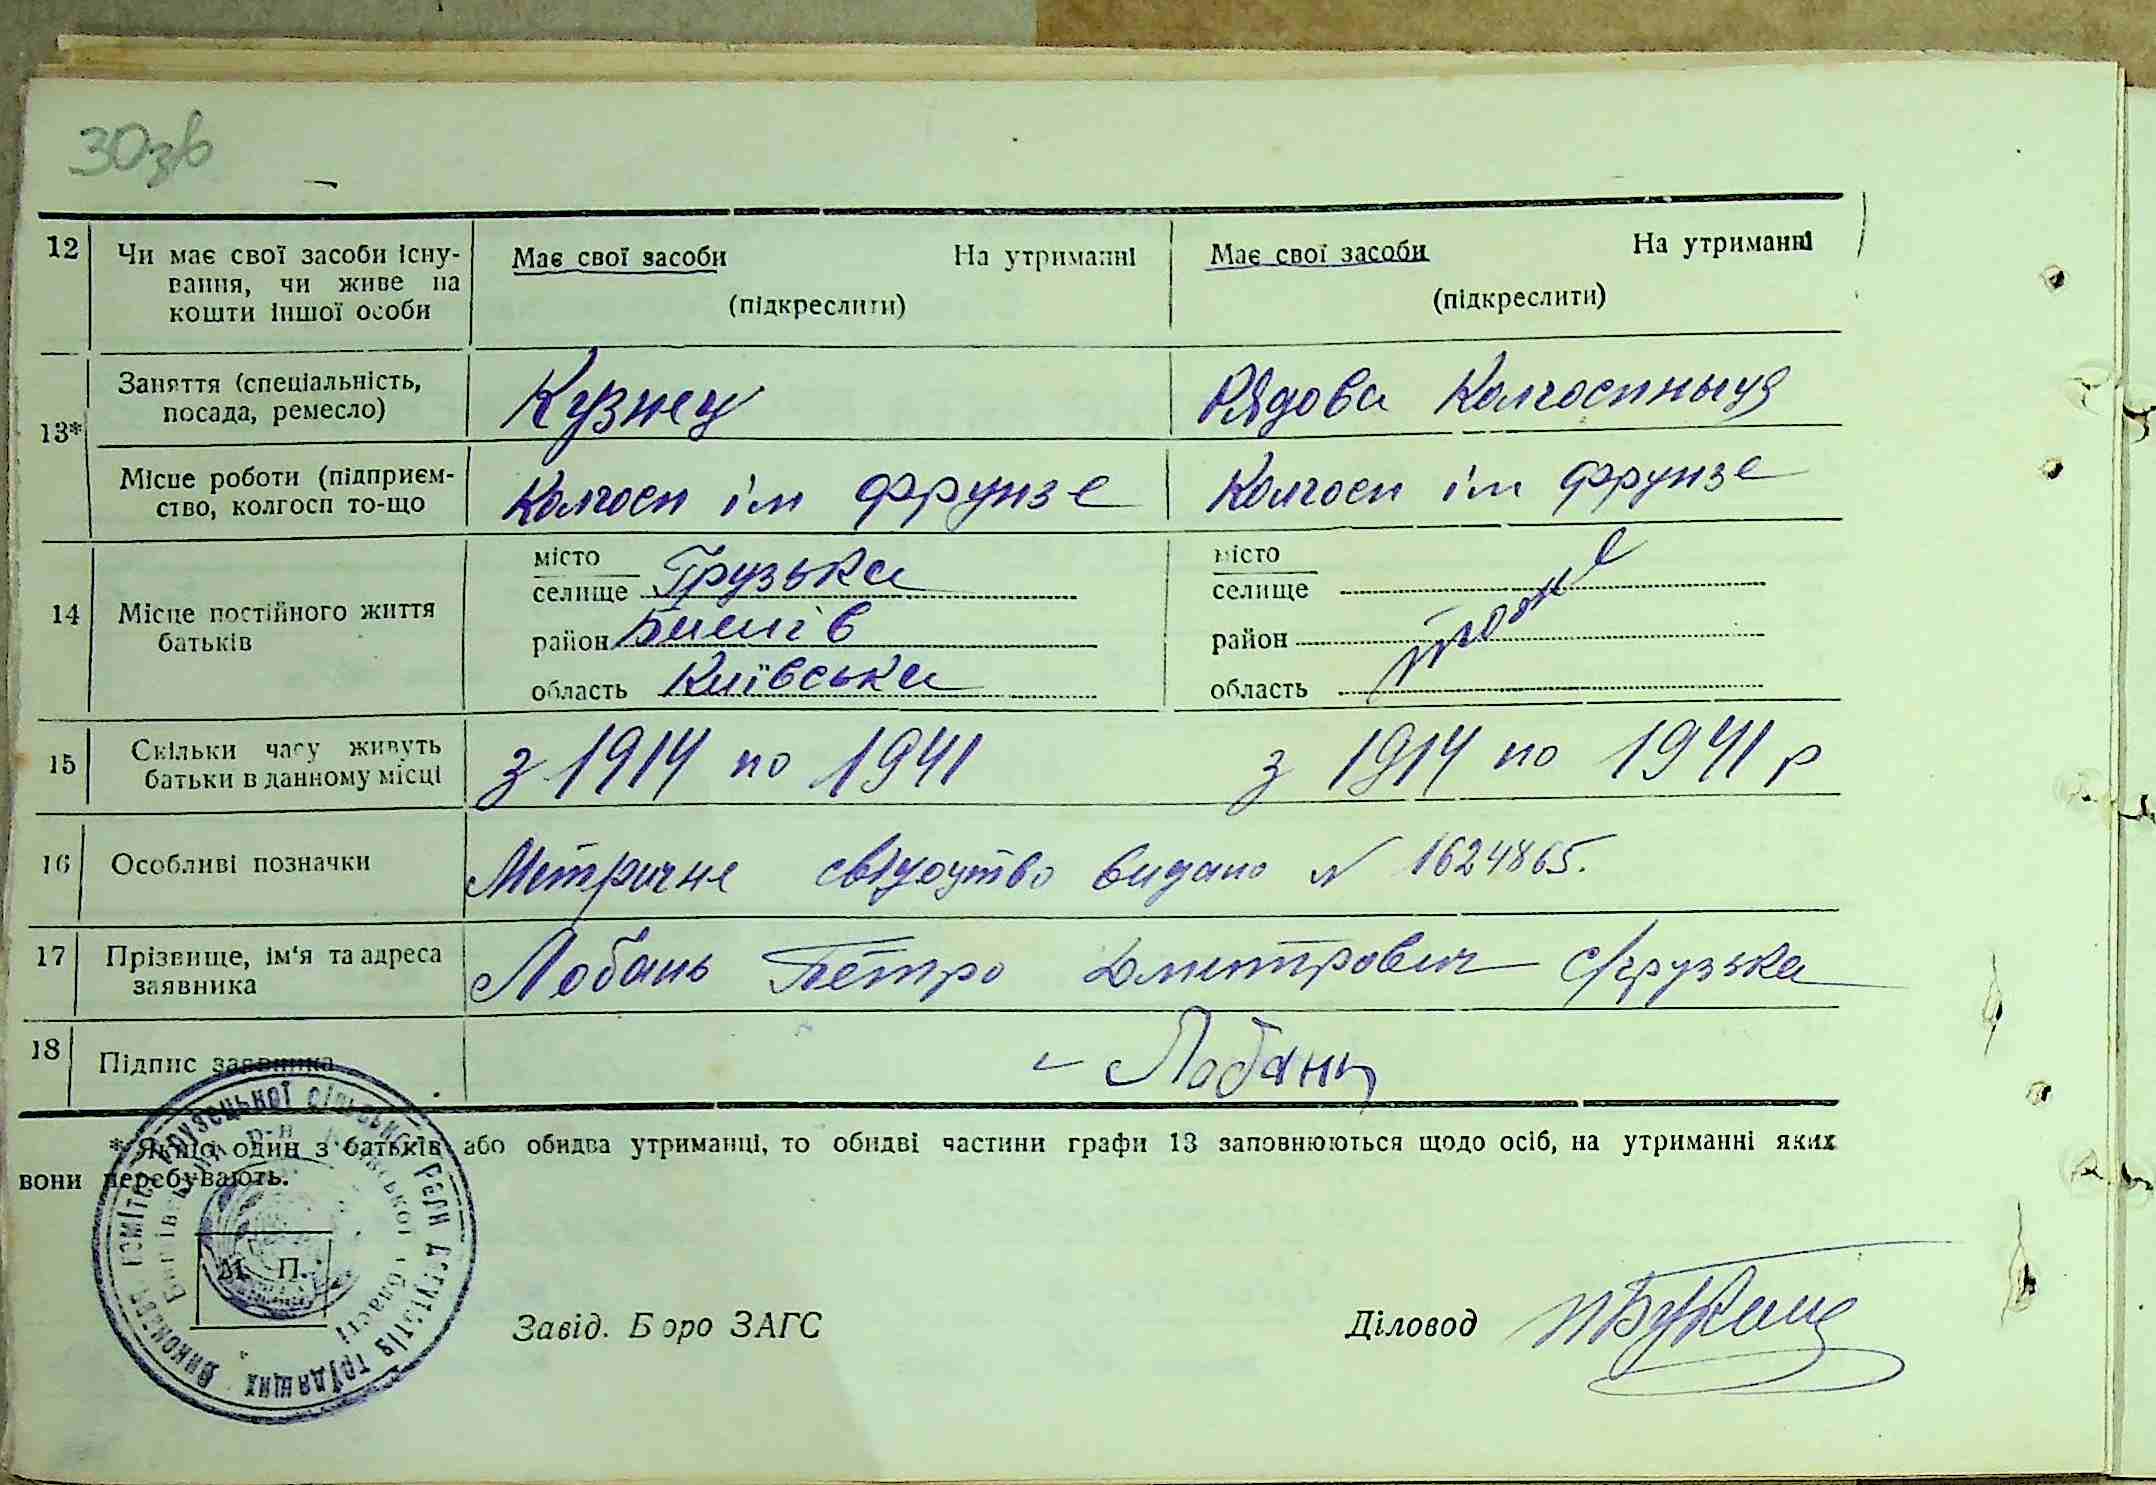 30зв
12 Чи має свої засоби існу-
вання, чи живе на
кошти іншої особи
Має свої засоби На утриманні
(підкреслити)
Має свої засоби На утриманні
(підкреслити)
13*
Заняття (спеціальність,
посада, ремесло)
Кузнец
Рядова Колгоспныця
Місце роботи (підприєм-
ство, колгосп то-що
Колгосп ім Фрунзе
Колгосп ім Фрунзе
14 Місце постійного життя
батьків
місто
селище Грузька
район
область Київська
місто
селище
район
область
15 Скільки часу живуть
батьки в данному місці
з 1914 по 1941
з 1914 по 1941 р
16 Особливі позначки
Метричне свідоцтво видано N 1624865.
17 Прізвище, ім'я та адреса
заявника
Лобань Петро Дмитрович с/Грузька
18 Підпис заявника
Лобань
* Якщо один з батьків або обидва утриманці, то обидві частини графи 13 заповнюються щодо осіб, на утриманні яких
вони перебувають.
Виконавч комітет Грузецької сільської Ради депутатів трудящих
р-н Київської області
М. П.
Завід. Бюро ЗАГС
Діловод